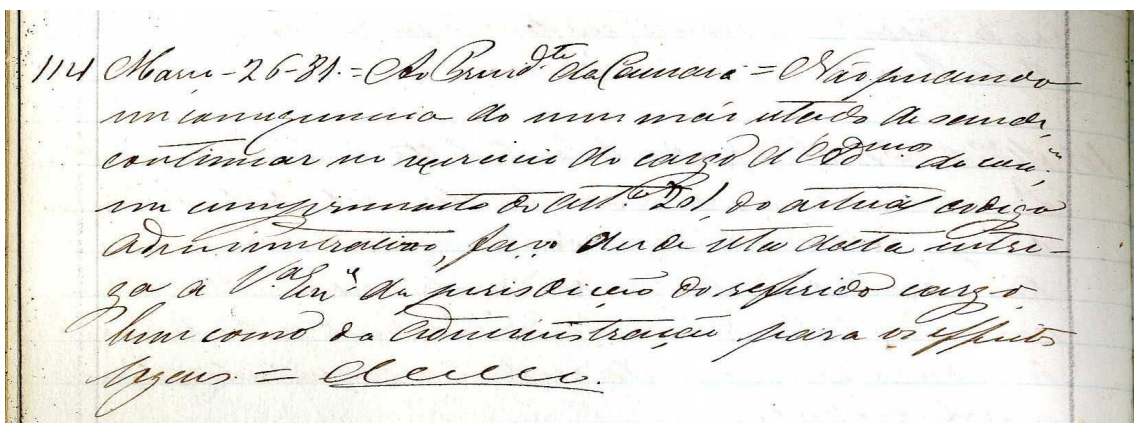 114 Março - 26-81. = Ao Presid.te da Camara = Não podendo
em consequencia do meu máu estado de saude,
continuar no exercicio do cargo d'Adm.or do con.º,
em cumprimento do Art.º 201, do actual codigo
administrativo, faço desde esta data entre-
ga a V.ª Ex.ª da jurisdicção do referido cargo
bem como da administração para os effeitos
legaes =